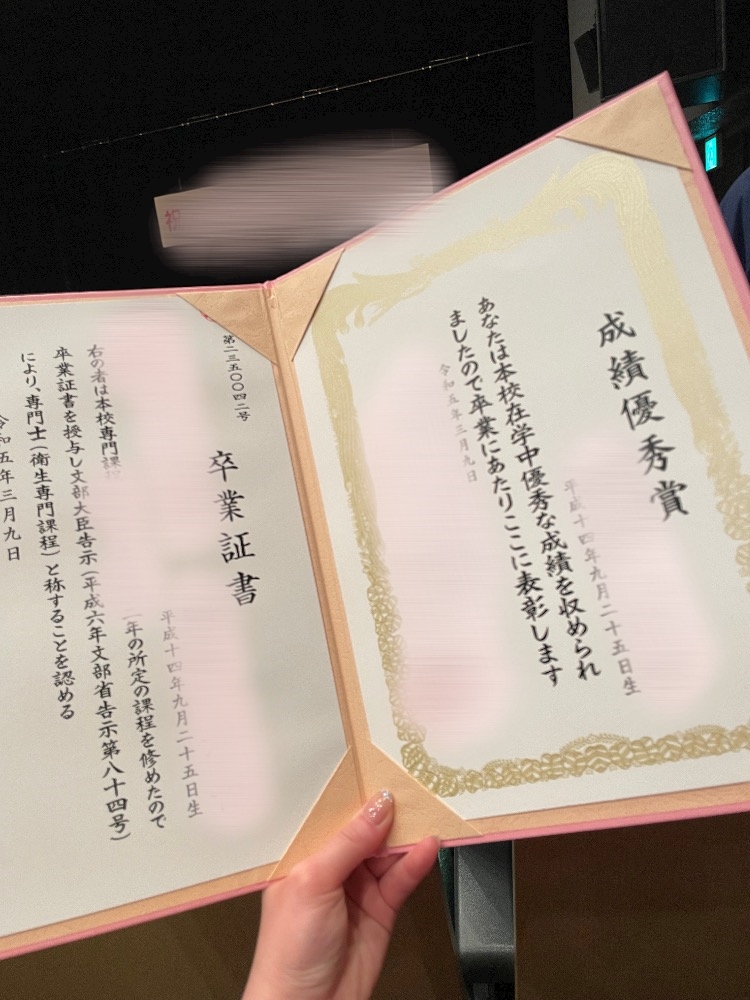 祝
成績優秀賞
平成十四年九月二十五日生
あなたは本校在学中優秀な成績を収められ
ましたので卒業にあたりここに表彰します
令和五年三月九日
第二三五〇〇四二号
卒業証書
平成十四年九月二十五日生
右の者は本校専門課程
年の所定の課程を修めたので
卒業証書を授与し文部大臣告示(平成六年文部省告示第八十四号)
により、専門士(衛生専門課程)と称することを認める
令和五年三月九日